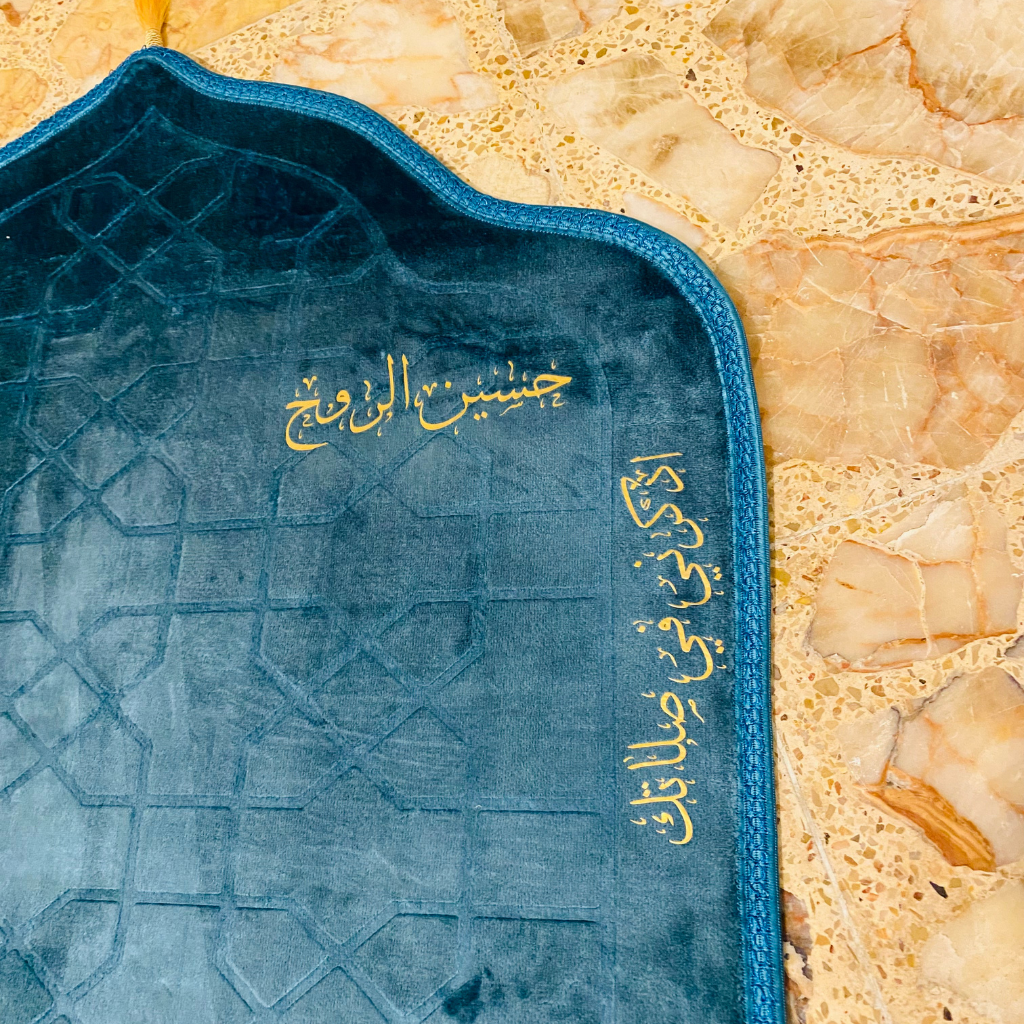 حسين الروح
اذكرني في صلاتك